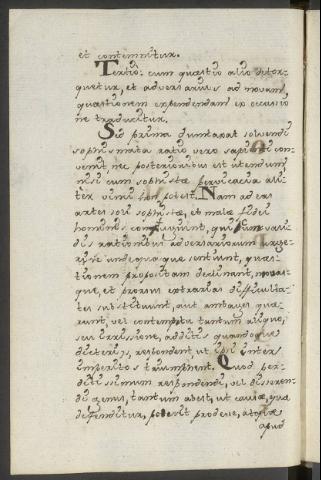 et contemnitur.
Tertiò: cum quæstio alio detor-
quetur, et adversarius ad novam
quæstionem expendendam ex occasio
ne traducitur.
Sed prima duntaxat solvendi
sophismata ratio vero sapienti con-
venit, nec posterioribus est utendum
nisi cum sophistæ pervicacia ali-
ter vinci non potest. Nam ad eas
artes soli sophistæ, et malæ fidei
homines confugiunt, qui cum vali-
dis rationibus adversariorum
se undequaque sentiunt, quæs-
tionem propositam declinant, novas-
que, et prorsus extrarias difficulta-
tes substituunt, aut ambages quæ-
runt, vel contemptu tantum aliquo,
seu irrisione, additis quandoque
dicteriis, respondent, ut ipsi inter
imperitos triumphent. Quod per-
ditissimum respondendi, vel disseren-
di genus, tantum abest, ut causæ, quæ
defenditur, possit prodesse, atque
apud